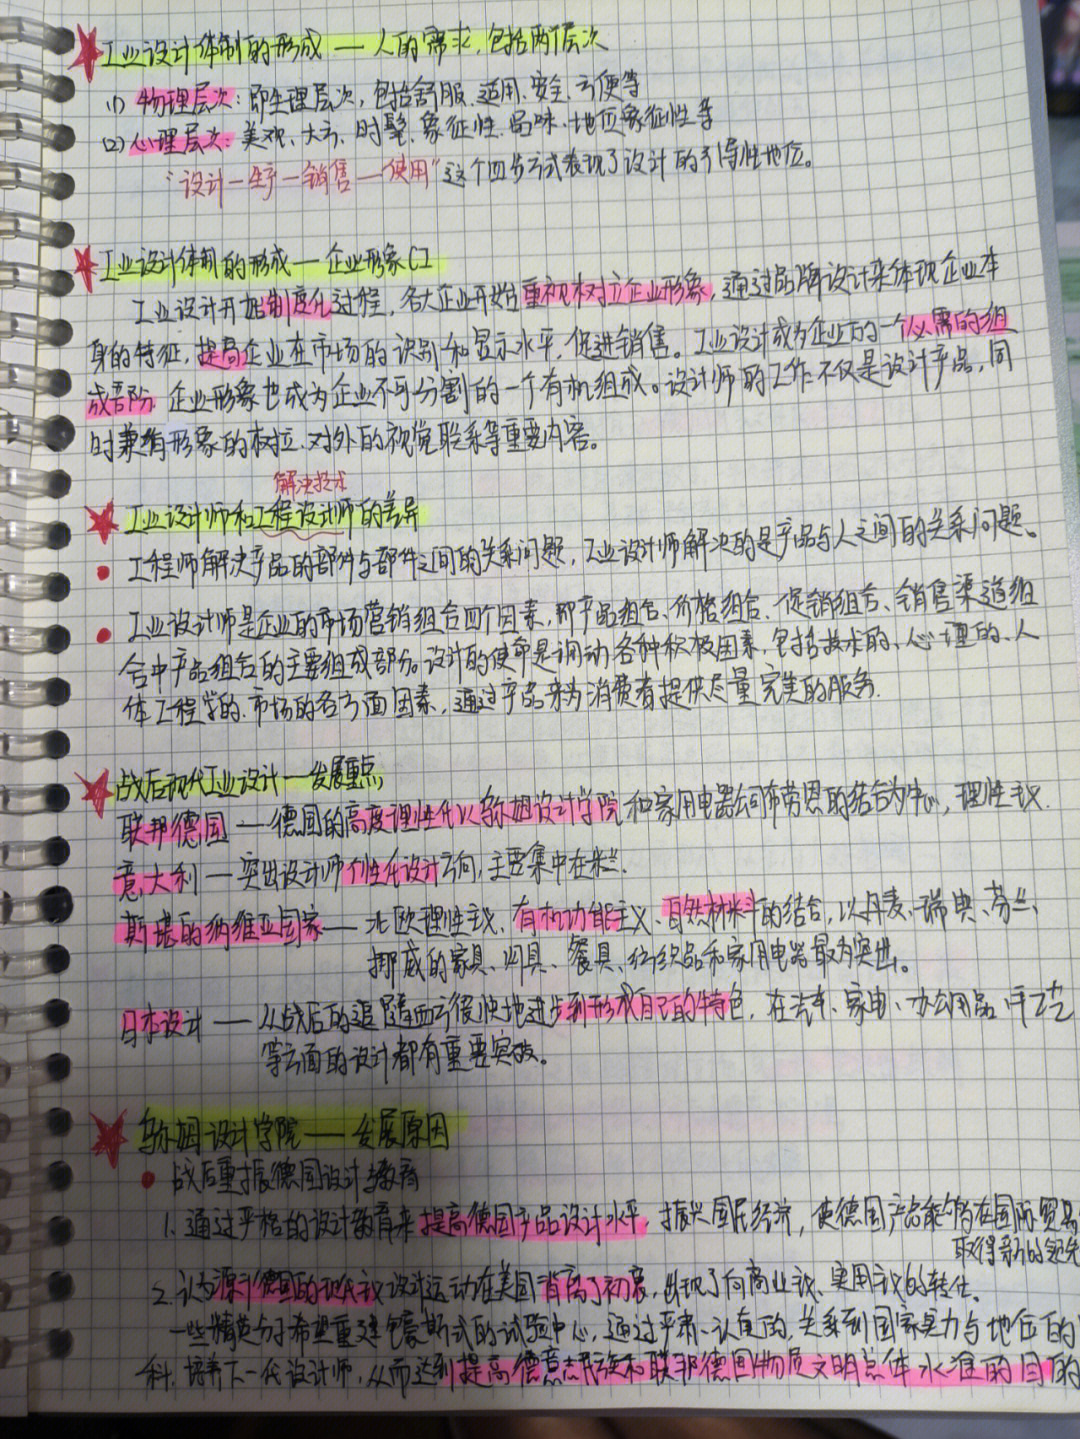 工业设计体制的形成 — 人的需求,包括两个层次
(1) 物理层次:即生理层次,包括舒服、适用、安全、方便等
(2) 心理层次:美观、大方、时髦、象征性、品味、地位象征性等
“设计—生产—销售—使用”这个四步方式表现了设计的引导性地位。
工业设计体制的形成 — 企业形象CI
工业设计开始制度化过程,各大企业开始重视树立企业形象,通过品牌设计来体现企业本
身的特征,提高企业在市场的识别和显示水平,促进销售。工业设计成为企业的一个必需的组
成部分,企业形象也成为企业不可分割的一个有机组成。设计师的工作不仅是设计产品,同
时兼有形象的树立、对外的视觉联系等重要内容。
解决技术
工业设计师和工程设计师的差异
工程师解决产品的部件与部件之间的关系问题,工业设计师解决的是产品与人之间的关系问题。
工业设计师是企业的市场营销组合四个因素,即产品组合、价格组合、促销组合、销售渠道组
合中产品组合的主要组成部分。设计的使命是调动各种积极因素,包括技术的、心理的、人
体工程学的、市场的各方面因素,通过产品来为消费者提供尽量完美的服务.
战后现代工业设计 — 发展重点
联邦德国 — 德国的高度理性化以乌尔姆设计学院和家用电器公司布劳恩的结合为中心,理性主义.
意大利 — 突出设计师个性化设计方向,主要集中在米兰.
斯堪的纳维亚国家 — 北欧理性主义、有机功能主义、自然材料的结合,以丹麦、瑞典、芬兰、
挪威的家具、灯具、餐具、纺织品和家用电器最为突出。
日本设计 — 从战后的追随西方很快地进步到形成自己的特色,在汽车、家电、办公用品、手工艺
等方面的设计都有重要突破。
乌尔姆设计学院 — 发展原因
战后重振德国设计教育
1. 通过严格的设计教育来提高德国产品设计水平,振兴国民经济,使德国产品能够在国际贸易
取得新的领先
2. 认为源于德国的现代主义设计运动在美国背离了初衷,出现了向商业主义、实用主义的转化.
一些精英分子希望重建包豪斯式的试验中心,通过严肃、认真的、关系到国家实力与地位的
科,培养下一代设计师,从而达到提高德意志民族和联邦德国物质文明总体水准的目的